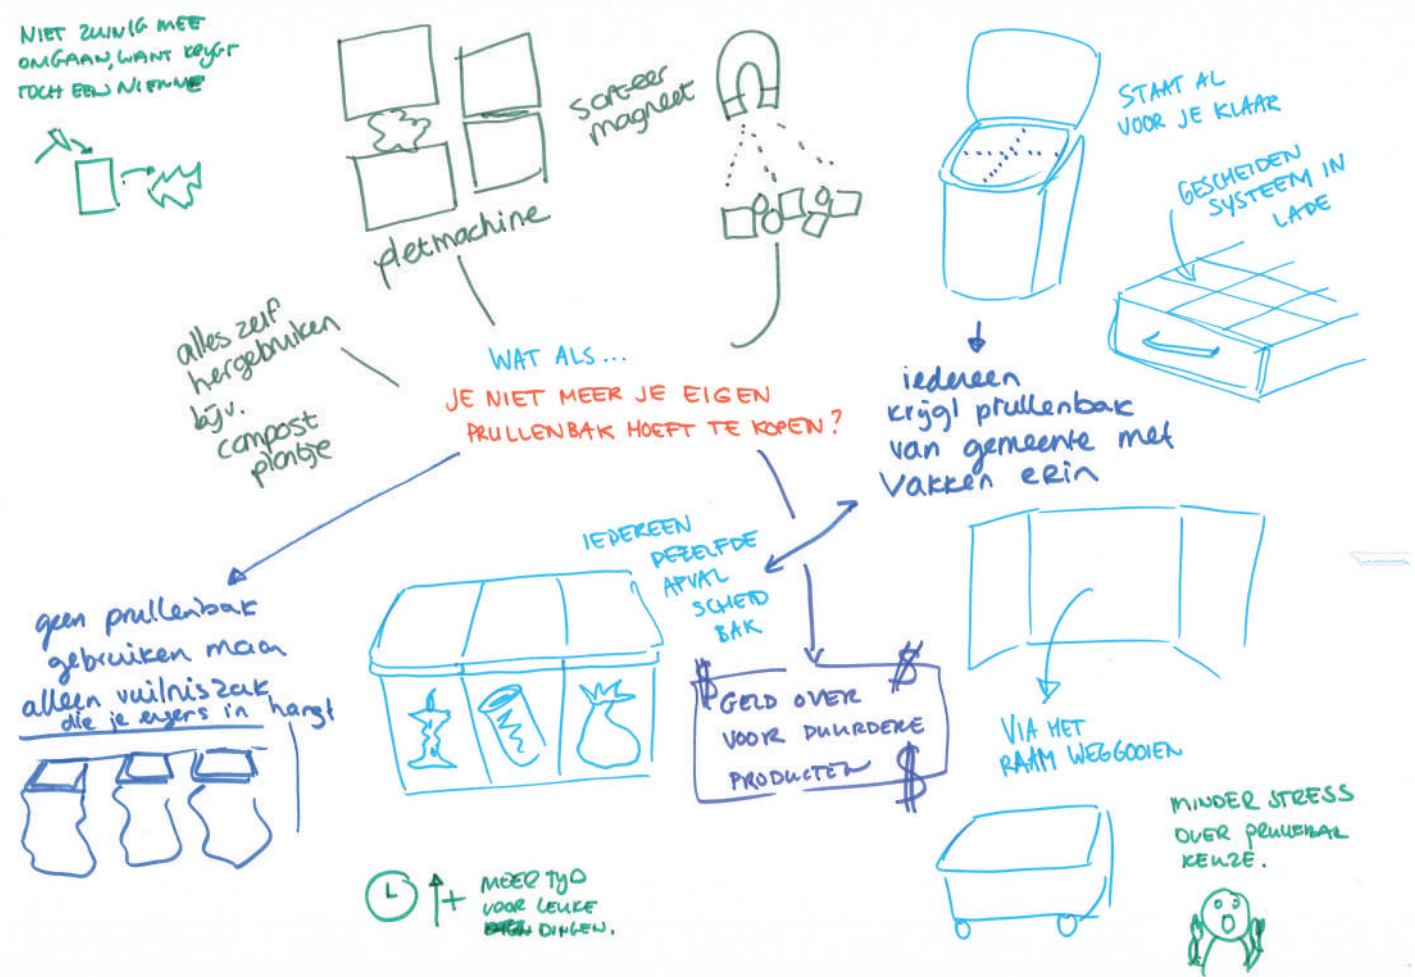 NIET ZUINIG MEE
OMGAAN, WANT KRYGT
TOCH EEN NIEUWE
sorteer
magneet
pletmachine
STAAT AL
VOOR JE KLAAR
GESCHEIDEN
SYSTEEM IN
LADE
alles zelf
hergebruiken
bijv.
compost
plantje
WAT ALS...
JE NIET MEER JE EIGEN
PRULLENBAK HOEFT TE KOPEN?
iedereen
krijgt prullenbak
van gemeente met
vakken erin
IEDEREEN
DEZELFDE
AFVAL
SCHEID
BAK
geen prullenbak
gebruiken maar
alleen vuilniszak
die je ergens in hangt
$ $
GELD OVER
VOOR DUURDERE
PRODUCTEN $
VIA HET
RAAM WEGGOOIEN
MINDER STRESS
OVER PRULLEBAK
KEUZE.
+ MEER TYD
VOOR LEUKE
DINGEN.